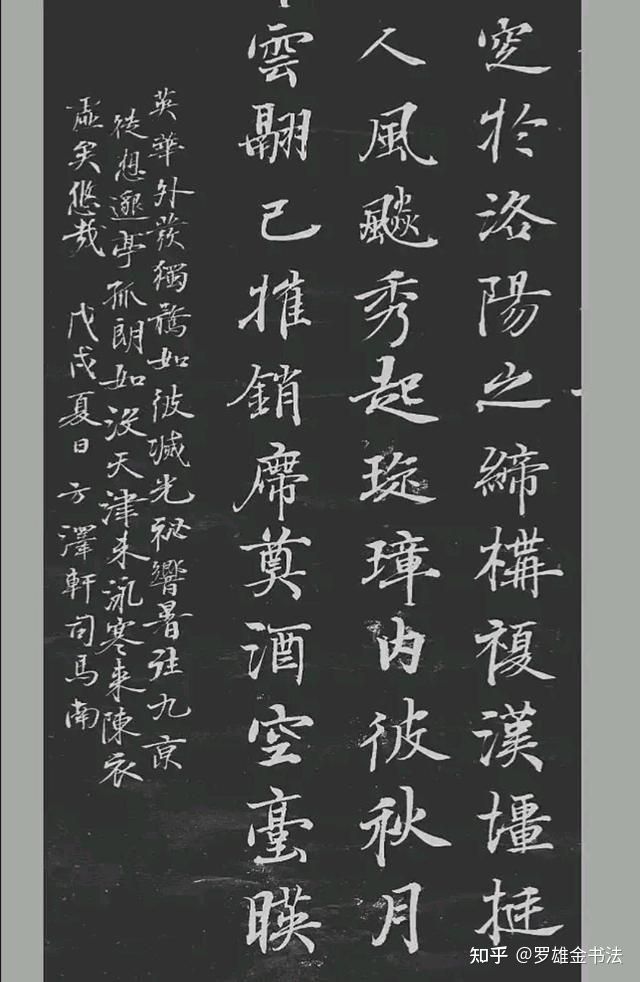 定於洛陽之締構複漢壃挻
人風飈秀起琁璋内彼秋月
雲翮已摧銷席奠酒空臺暎
英華外發獨鶩如彼滅光祕響暑往九京
徒想邈亭孤朗如没天津未泳寒来陳衣
虛矣悠哉 戊戌夏日方澤軒司馬南
知乎 @罗雄金书法